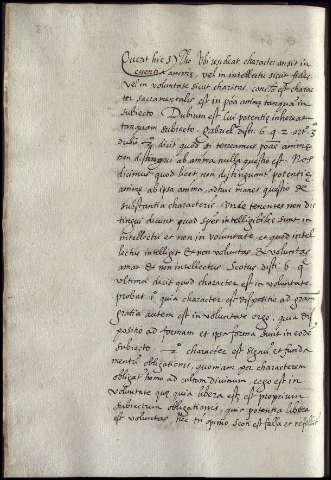 Quærat hic S. Tho. Ubi inheat character an sit in
essentia animę, vel in intellectu sicut fides
vel in voluntate sicut charitas, conclo est charac
ter sacramentalis est in poa animę tanquam in
subiecto. Dubium est cui potentię inhæreat
tanquam subiecto. Gabriel disti. 6. q. 2. art. 3
dubio dicit quod si teneamus poas animę
non distingui ab anima nulla questio est. Nos
dicimus quod licet non distinguant potentię
animę ab ipsa anima, adhuc manet questio de
substantia characteris. Unde tenentes non dis
tingui dicunt quod species intelligibiles sunt in
intellectu et non in voluntate, et quod intel
lectus intelligit et non voluntas, et voluntas
amat et non intellectus. Scotus disti. 6. q.
ultima dicit quod character est in voluntate
probat 1º quia character est dispositio ad gram
gratia autem est in voluntate ergo, quia dis
positio ad formam et ipsa forma sunt in eodẽ
subiecto. 2º character est signũ et funda
mentũ obligationis, quoniam per characterem
obligat homo ad cultum divinum, ergo est in
voluntate quę quia libera est, est proprium
subiectum obligationis, quia potentia libera
est voluntas, hęc tñ opinio Scoti est falsa et